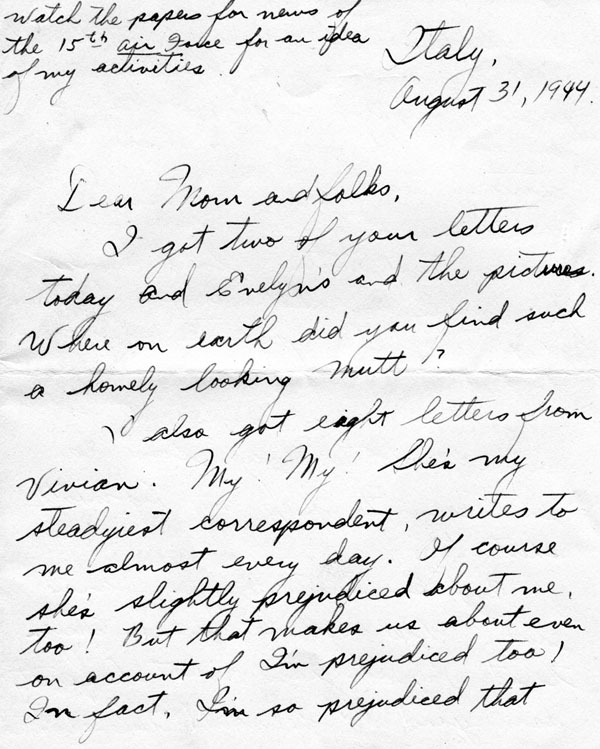 Watch the papers for news of
the 15th air Force for an idea
of my activities.
Italy,
August 31, 1944.
Dear Mom and folks,
I got two of your letters
today and Evelyn's and the pictures.
Where on earth did you find such
a homely looking mutt?
I also got eight letters from
Vivian. My! My! She's my
steadyiest correspondent, writes to
me almost every day. Of course
she's slightly prejudiced about me,
too! But that makes us about even
on account of I'm prejudiced too!
In fact, I'm so prejudiced that